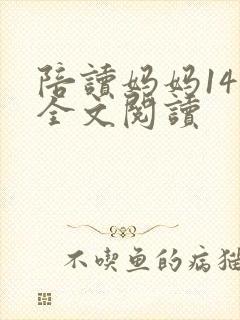 陪讀妈妈14
全文閱讀
不喫鱼的病猫